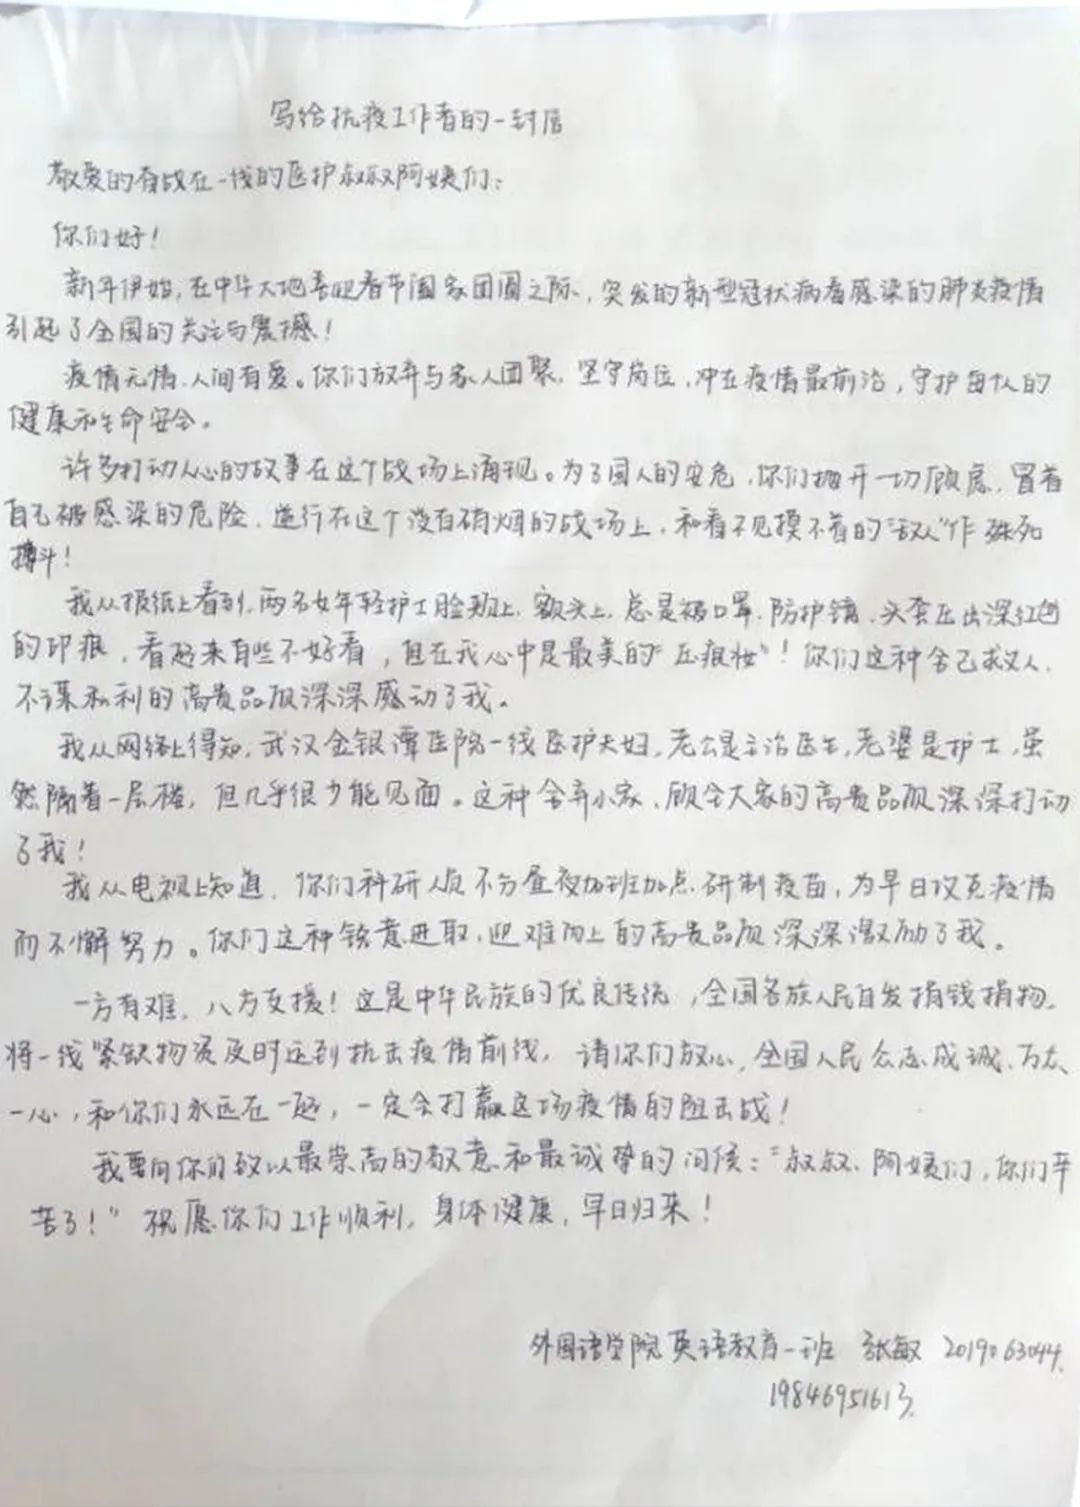 写给抗疫工作者的一封信
敬爱的奋战在一线的医护叔叔阿姨们：
你们好！
新年伊始，在中华大地喜迎春节阖家团圆之际，突发的新型冠状病毒感染的肺炎疫情
引起了全国的关注与震撼！
疫情无情，人间有爱。你们放弃与家人团聚，坚守岗位，冲在疫情最前沿，守护每个人的
健康和生命安全。
许多打动人心的故事在这个战场上涌现。为了国人的安危，你们抛开一切顾虑，冒着
自己被感染的危险，逆行在这个没有硝烟的战场上，和看不见摸不着的“敌人”作殊死
搏斗！
我从报纸上看到，两名女年轻护士脸颊上、额头上，总是被口罩、防护镜、头套压出深红色
的印痕，看起来有些不好看，但在我心中是最美的“压痕妆”！你们这种舍己救人、
不谋私利的高贵品质深深感动了我。
我从网络上得知，武汉金银潭医院一线医护夫妇，老公是主治医生，老婆是护士，虽
然隔着一层楼，但几乎很少能见面。这种舍弃小家、顾全大家的高贵品质深深打动
了我！
我从电视上知道，你们科研人员不分昼夜加班加点研制疫苗，为早日攻克疫情
而不懈努力。你们这种锐意进取，迎难而上的高贵品质深深激励了我。
一方有难，八方支援！这是中华民族的优良传统，全国各族人民自发捐钱捐物，
将一线紧缺物资及时运到抗击疫情前线，请你们放心，全国人民众志成诚、万众
一心，和你们永远在一起，一定会打赢这场疫情的阻击战！
我要向你们致以最崇高的敬意和最诚挚的问候：“叔叔、阿姨们，你们辛
苦了！”祝愿你们工作顺利，身体健康，早日归来！
外国语学院英语教育一班 张敏 2019063044
19846951613